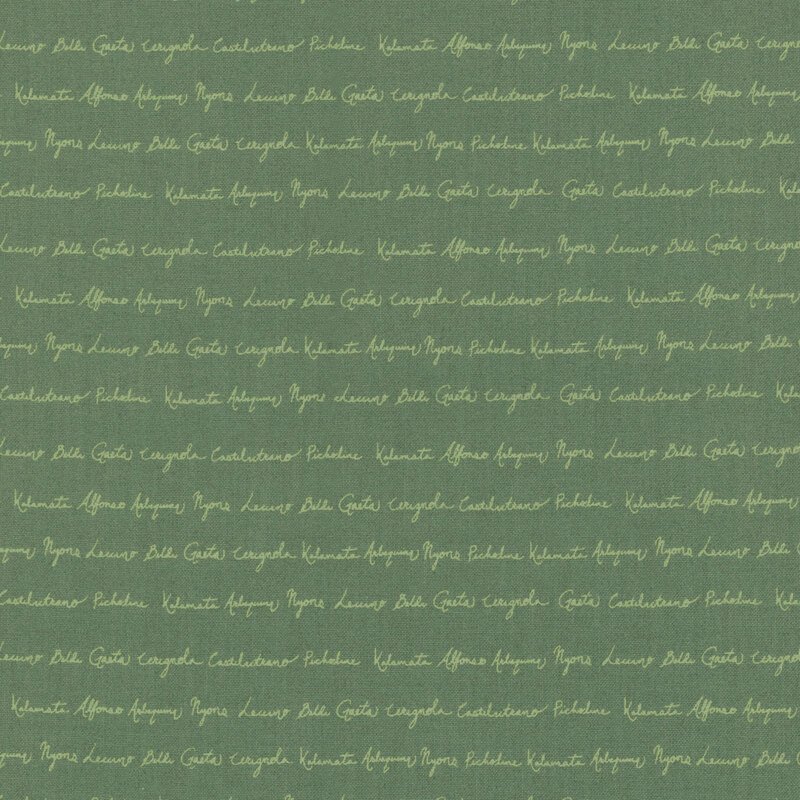 Leccino Bella Gaeta Cerignola Castelvetrano Picholine Kalamata Alfonso Arbequina Nyons Leccino Bella Gaeta
Kalamata Alfonso Arbequina Nyons Leccino Bella Gaeta Cerignola Castelvetrano Picholine Kalamata Alfonso
Nyons Leccino Bella Gaeta Cerignola Kalamata Arbequina Nyons Picholine Kalamata Arbequina Nyons Leccino Bella
Castelvetrano Picholine Kalamata Arbequina Nyons Leccino Bella Gaeta Cerignola Gaeta Castelvetrano Picholine
Leccino Bella Gaeta Cerignola Castelvetrano Picholine Kalamata Alfonso Arbequina Nyons Leccino Bella Gaeta
Kalamata Alfonso Arbequina Nyons Leccino Bella Gaeta Cerignola Castelvetrano Picholine Kalamata Alfonso
Nyons Leccino Bella Gaeta Cerignola Kalamata Arbequina Nyons Picholine Kalamata Arbequina Nyons Leccino Bella
Castelvetrano Picholine Kalamata Arbequina Nyons Leccino Bella Gaeta Cerignola Gaeta Castelvetrano Picholine
Leccino Bella Gaeta Cerignola Castelvetrano Picholine Kalamata Alfonso Arbequina Nyons Leccino Bella Gaeta
Kalamata Alfonso Arbequina Nyons Leccino Bella Gaeta Cerignola Castelvetrano Picholine Kalamata Alfonso
Nyons Leccino Bella Gaeta Cerignola Kalamata Arbequina Nyons Picholine Kalamata Arbequina Nyons Leccino Bella
Castelvetrano Picholine Kalamata Arbequina Nyons Leccino Bella Gaeta Cerignola Gaeta Castelvetrano Picholine
Leccino Bella Gaeta Cerignola Castelvetrano Picholine Kalamata Alfonso Arbequina Nyons Leccino Bella Gaeta
Kalamata Alfonso Arbequina Nyons Leccino Bella Gaeta Cerignola Castelvetrano Picholine Kalamata Alfonso
Nyons Leccino Bella Gaeta Cerignola Kalamata Arbequina Nyons Picholine Kalamata Arbequina Nyons Leccino Bella